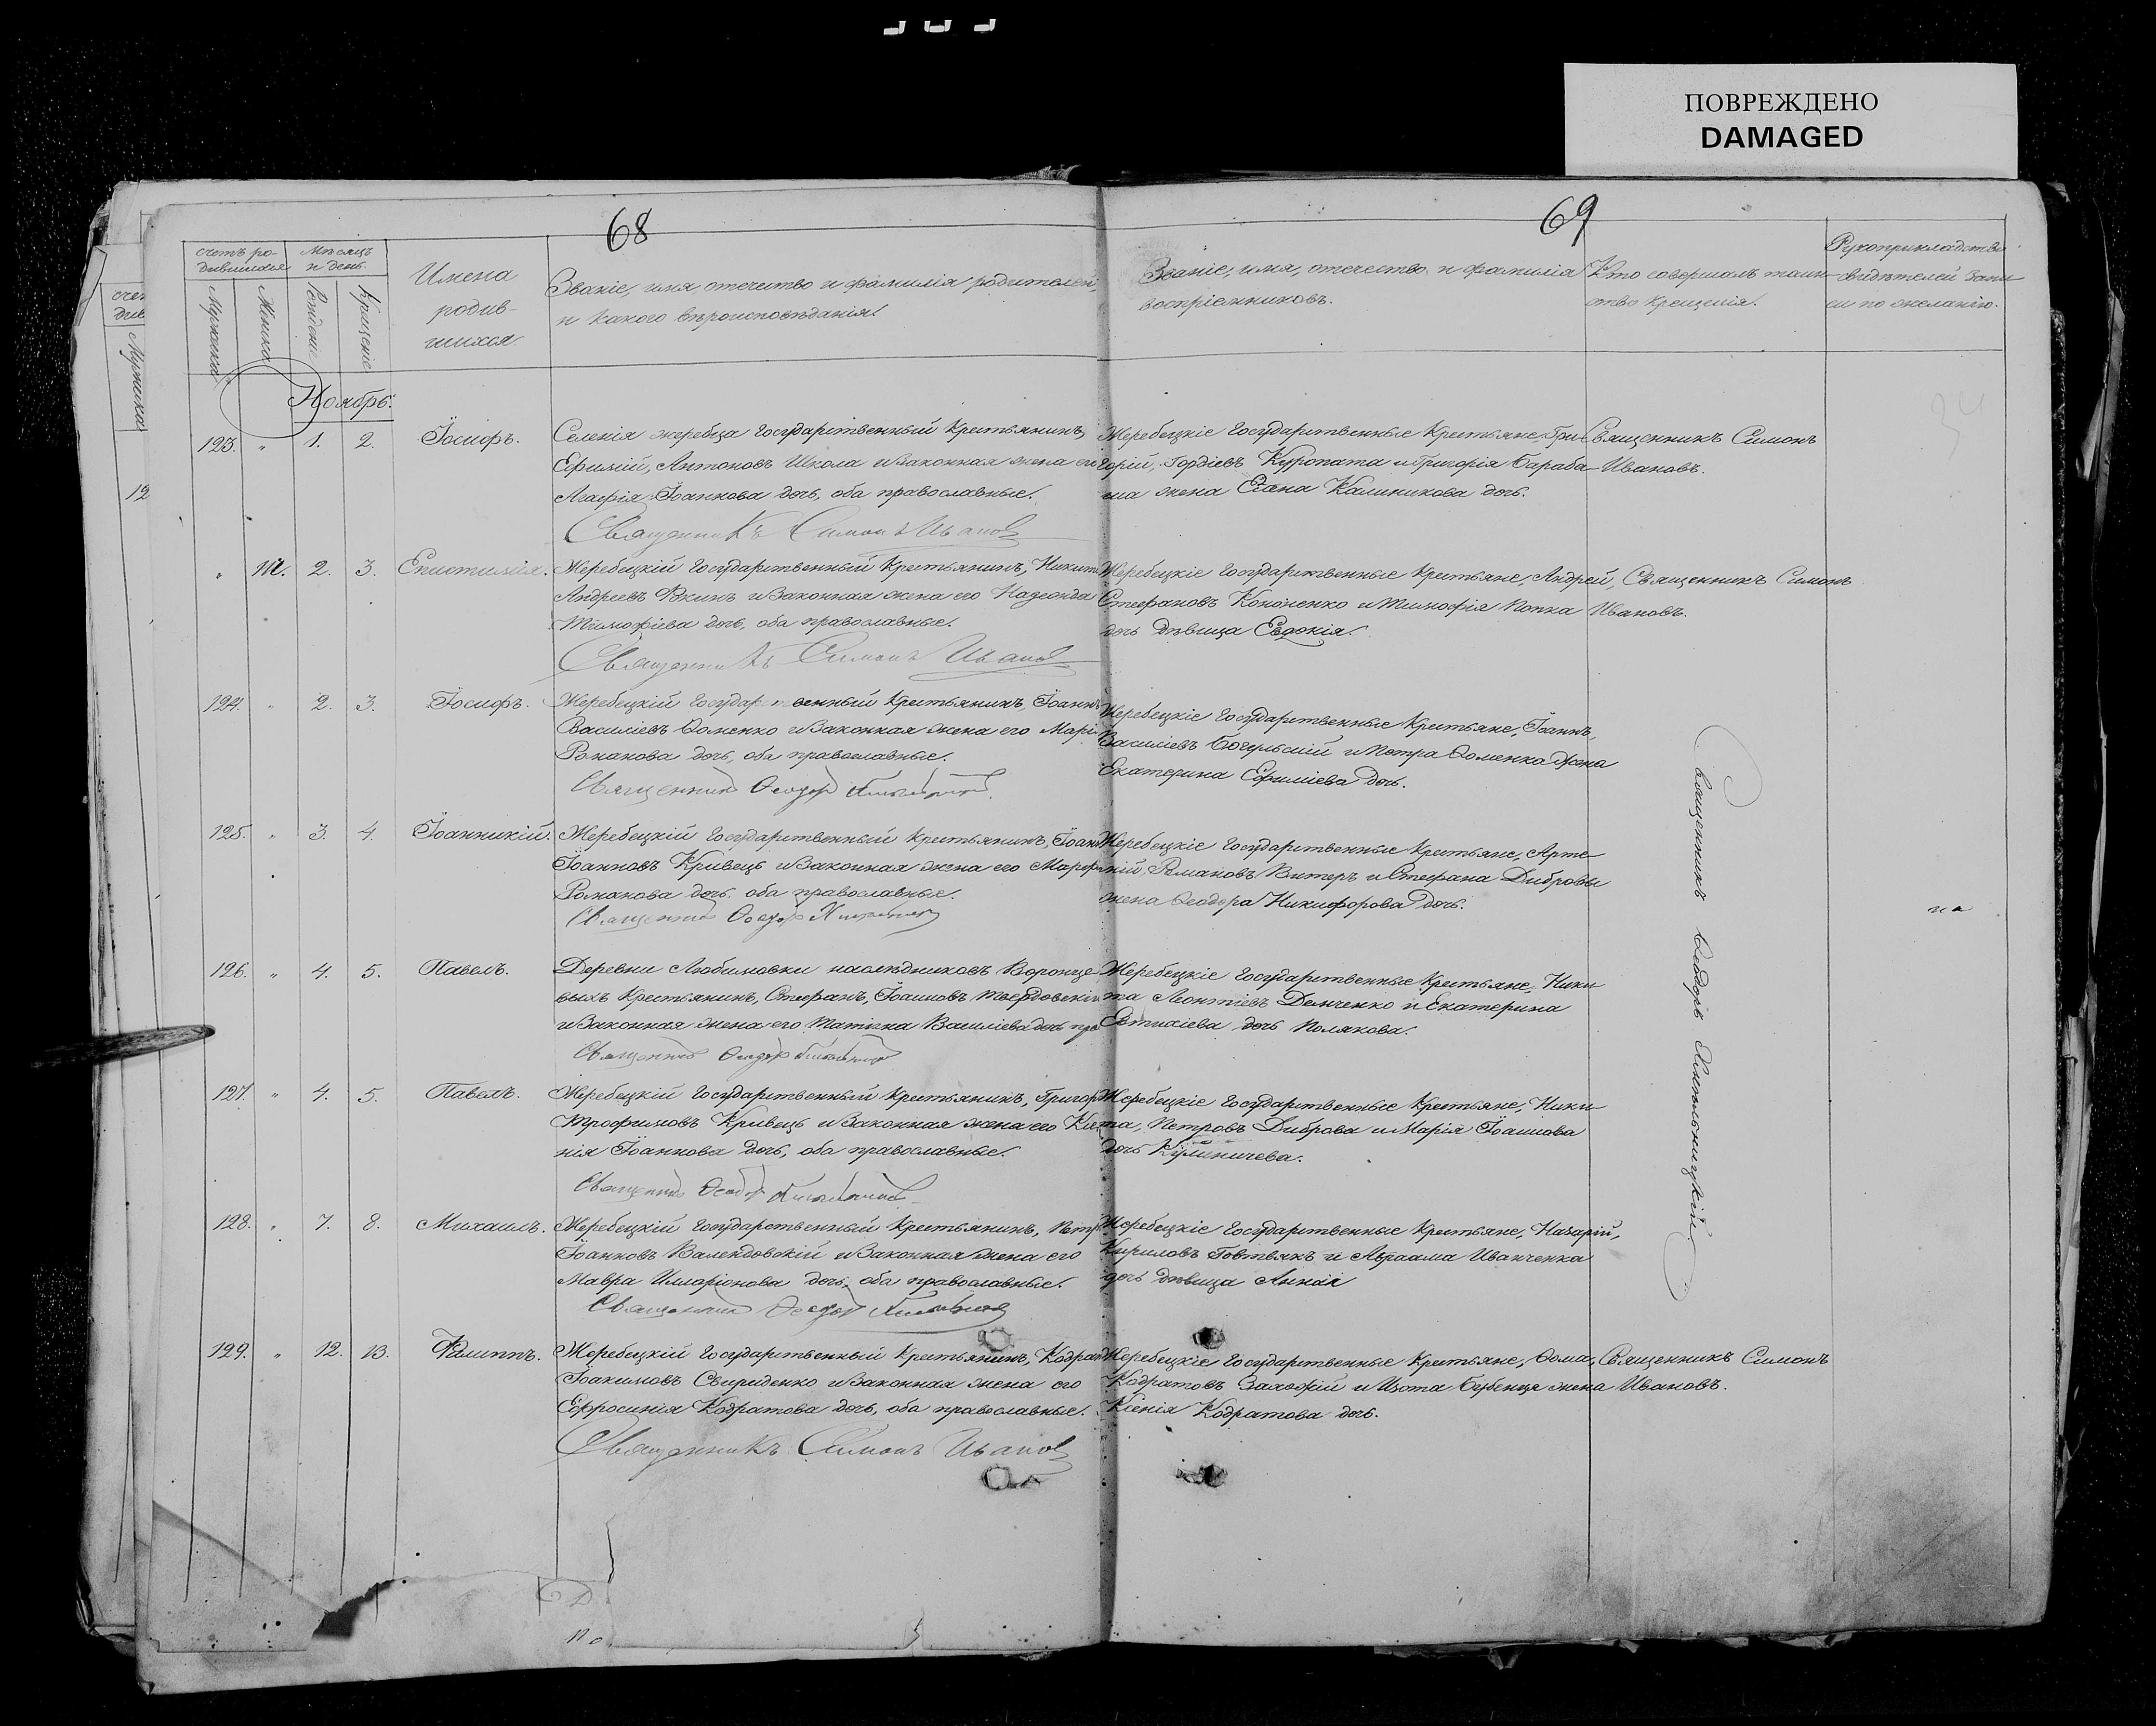 ПОВРЕЖДЕНО
DAMAGED
68
69
счетъ ро-
дившихся
Мѣсяцъ
и день.
Мужеска
Женска
Рожденіе
Крещеніе
Имена
родив-
шихся.
Званіе, имя отечество и фамилія родителей,
и какого вѣроисповѣданія.
Званіе, имя, отечество, и фамилія
воспріемниковъ.
Кто совершалъ таин-
ство крещенія.
Рукоприкладство
свидѣтелей запи
си по желанію.
Ноябрь:
123. " 1. 2. Іосифъ.
Селенія жеребца Государственный Крестьянинъ,
Ефимій, Антоновъ Школа и законная жена его
Агафія Іоаннова дочь, оба православные.
Священникъ Симонъ Иванов
Жеребецкіе Государственные Крестьяне, Гри-
горій, Гордіевъ Куропата и Григорія Бараба-
ша жена Калиникова дочь.
Священникъ Симонъ
Ивановъ.
" 2. 3. Епистимія.
Жеребецкій Государственный Крестьянинъ, Никита
Андреевъ и законная жена его Надежда
Тимофіева дочь, оба православные.
Священникъ Симонъ Иванов
Жеребецкіе Государственные Крестьяне, Андрей,
Стефановъ Кононенко и Тимофія Попка
дочь дѣвица Евдокія.
Священникъ Симонъ
Ивановъ.
124. " 2. 3. Іосифъ.
Жеребецкій Государ венный Крестьянинъ, Іоаннъ
Василіевъ Ѳоменко и законная жена его Марі
Романова дочь, оба православные.
Священникъ Ѳеодоръ
Жеребецкіе Государственные Крестьяне, Іоаннъ,
Василіевъ и Петра Ѳоменка жена
Екатерина Ефиміева дочь.
125. " 3. 4. Іоанникій.
Жеребецкій Государственный Крестьянинъ, Іоаннъ
Іоанновъ Кривецъ и законная жена его Марѳа
Романова дочь, оба православные.
Священникъ Ѳеодоръ
Жеребецкіе Государственные Крестьяне, Арте-
мій, Романовъ Витеръ и Стефана Дибровы
жена Ѳеодора Никифорова дочь.
126. " 4. 5. Павелъ.
Деревни Любимовки наслѣдниковъ Воронце-
выхъ Крестьянинъ, Стефанъ, Іоанновъ Твердовскій
и законная жена его Татіана Василіева дочь пра
Священникъ Ѳеодоръ
Жеребецкіе Государственные Крестьяне, Ники
та Леонтіевъ Демченко и Екатерина
Евтихіева дочь Полякова.
127. " 4. 5. Павелъ.
Жеребецкій Государственный Крестьянинъ, Григорій
Трофимовъ Кривецъ и законная жена его Ксе-
нія Іоаннова дочь, оба православные.
Священникъ Ѳеодоръ
Жеребецкіе Государственные Крестьяне, Ники
та, Петровъ Диброва и Марія Іоаннова
дочь Кулиничева.
128. " 7. 8. Михаилъ.
Жеребецкій Государственный Крестьянинъ, Петръ
Іоанновъ и законная жена его
Мавра Илларіонова дочь, оба православные.
Священникъ Ѳеодоръ
Жеребецкіе Государственные Крестьяне, Назарій,
Кириловъ Говтвякъ и Авраама Иванченка
дочь дѣвица Анна
Священникъ Ѳеодоръ Хмѣльницкій
129. " 12. 13. Филиппъ.
Жеребецкій Государственный Крестьянинъ, Кодратъ
Іоакимовъ Свириденко и законная жена его
Ефросинія Кодратова дочь, оба православные.
Священникъ Симонъ Иванов
Жеребецкіе Государственные Крестьяне, Ѳома,
Кодратовъ и Изота Бубенца жена
Ксенія Кодратова дочь.
Священникъ Симонъ
Ивановъ.